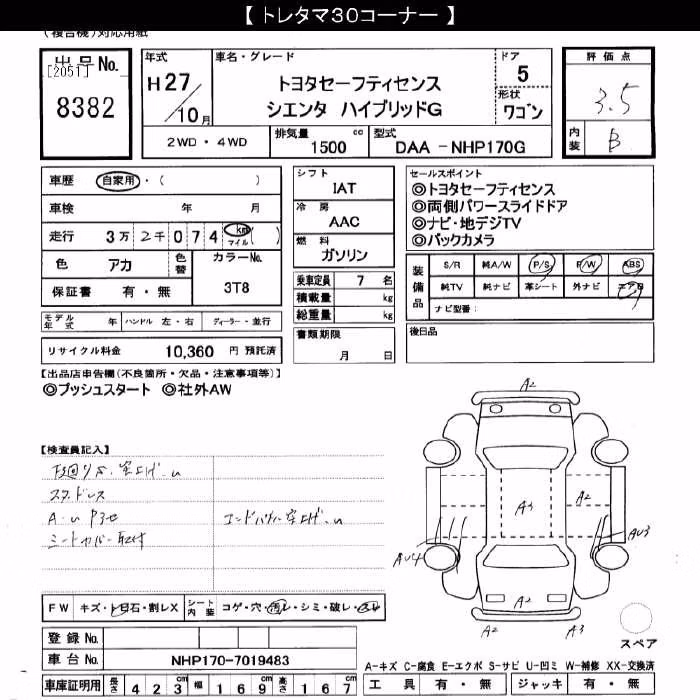 【 トレタマ30コーナー 】
(複合機)対応用紙
出品No.
[2051]
8382
年式
H27/10月
車名・グレード
トヨタセーフティセンス
シエンタ ハイブリッドG
ドア
5
形状
ワゴン
評価点
3.5
内装
B
2WD・4WD
排気量
1500 cc
型式
DAA -NHP170G
車歴 自家用・( )
車検 年 月
走行 3万 2千 0 7 4 km マイル ( )
色 アカ 色替 カラーNo.
保証書 有・無 3T8
シフト
IAT
冷房
AAC
燃料
ガソリン
乗車定員 7 名
積載量 kg
総重量 kg
書類期限
月 日
セールスポイント
◎トヨタセーフティセンス
◎両側パワースライドドア
◎ナビ・地デジTV
◎バックカメラ
装備品
S/R 純A/W P/S P/W ABS
純TV 純ナビ 革シート 外ナビ エアB
ナビ型番:
後日品
モデル年式 年 ハンドル 左・右 ディーラー・並行
リサイクル料金 10,360 円 預託済
【出品店申告欄(不良箇所・欠品・注意事項等)】
◎プッシュスタート ◎社外AW
【検査員記入】
スタドレス
シートカバー取付
A2
A3
A2
AU4
AU3
A2
A2
A3
スペア
FW キズ・ト目石・割レX シート内装 コゲ・穴・汚レ・シミ・破レ・スレ
登録No.
車台No. NHP170-7019483
車庫証明用 長さ 4 2 3 cm 幅 1 6 9 cm 高さ 1 6 7 cm
A-キズ C-腐食 E-エクボ S-サビ U-凹ミ W-補修 XX-交換済
工具 有・無 ジャッキ 有・無